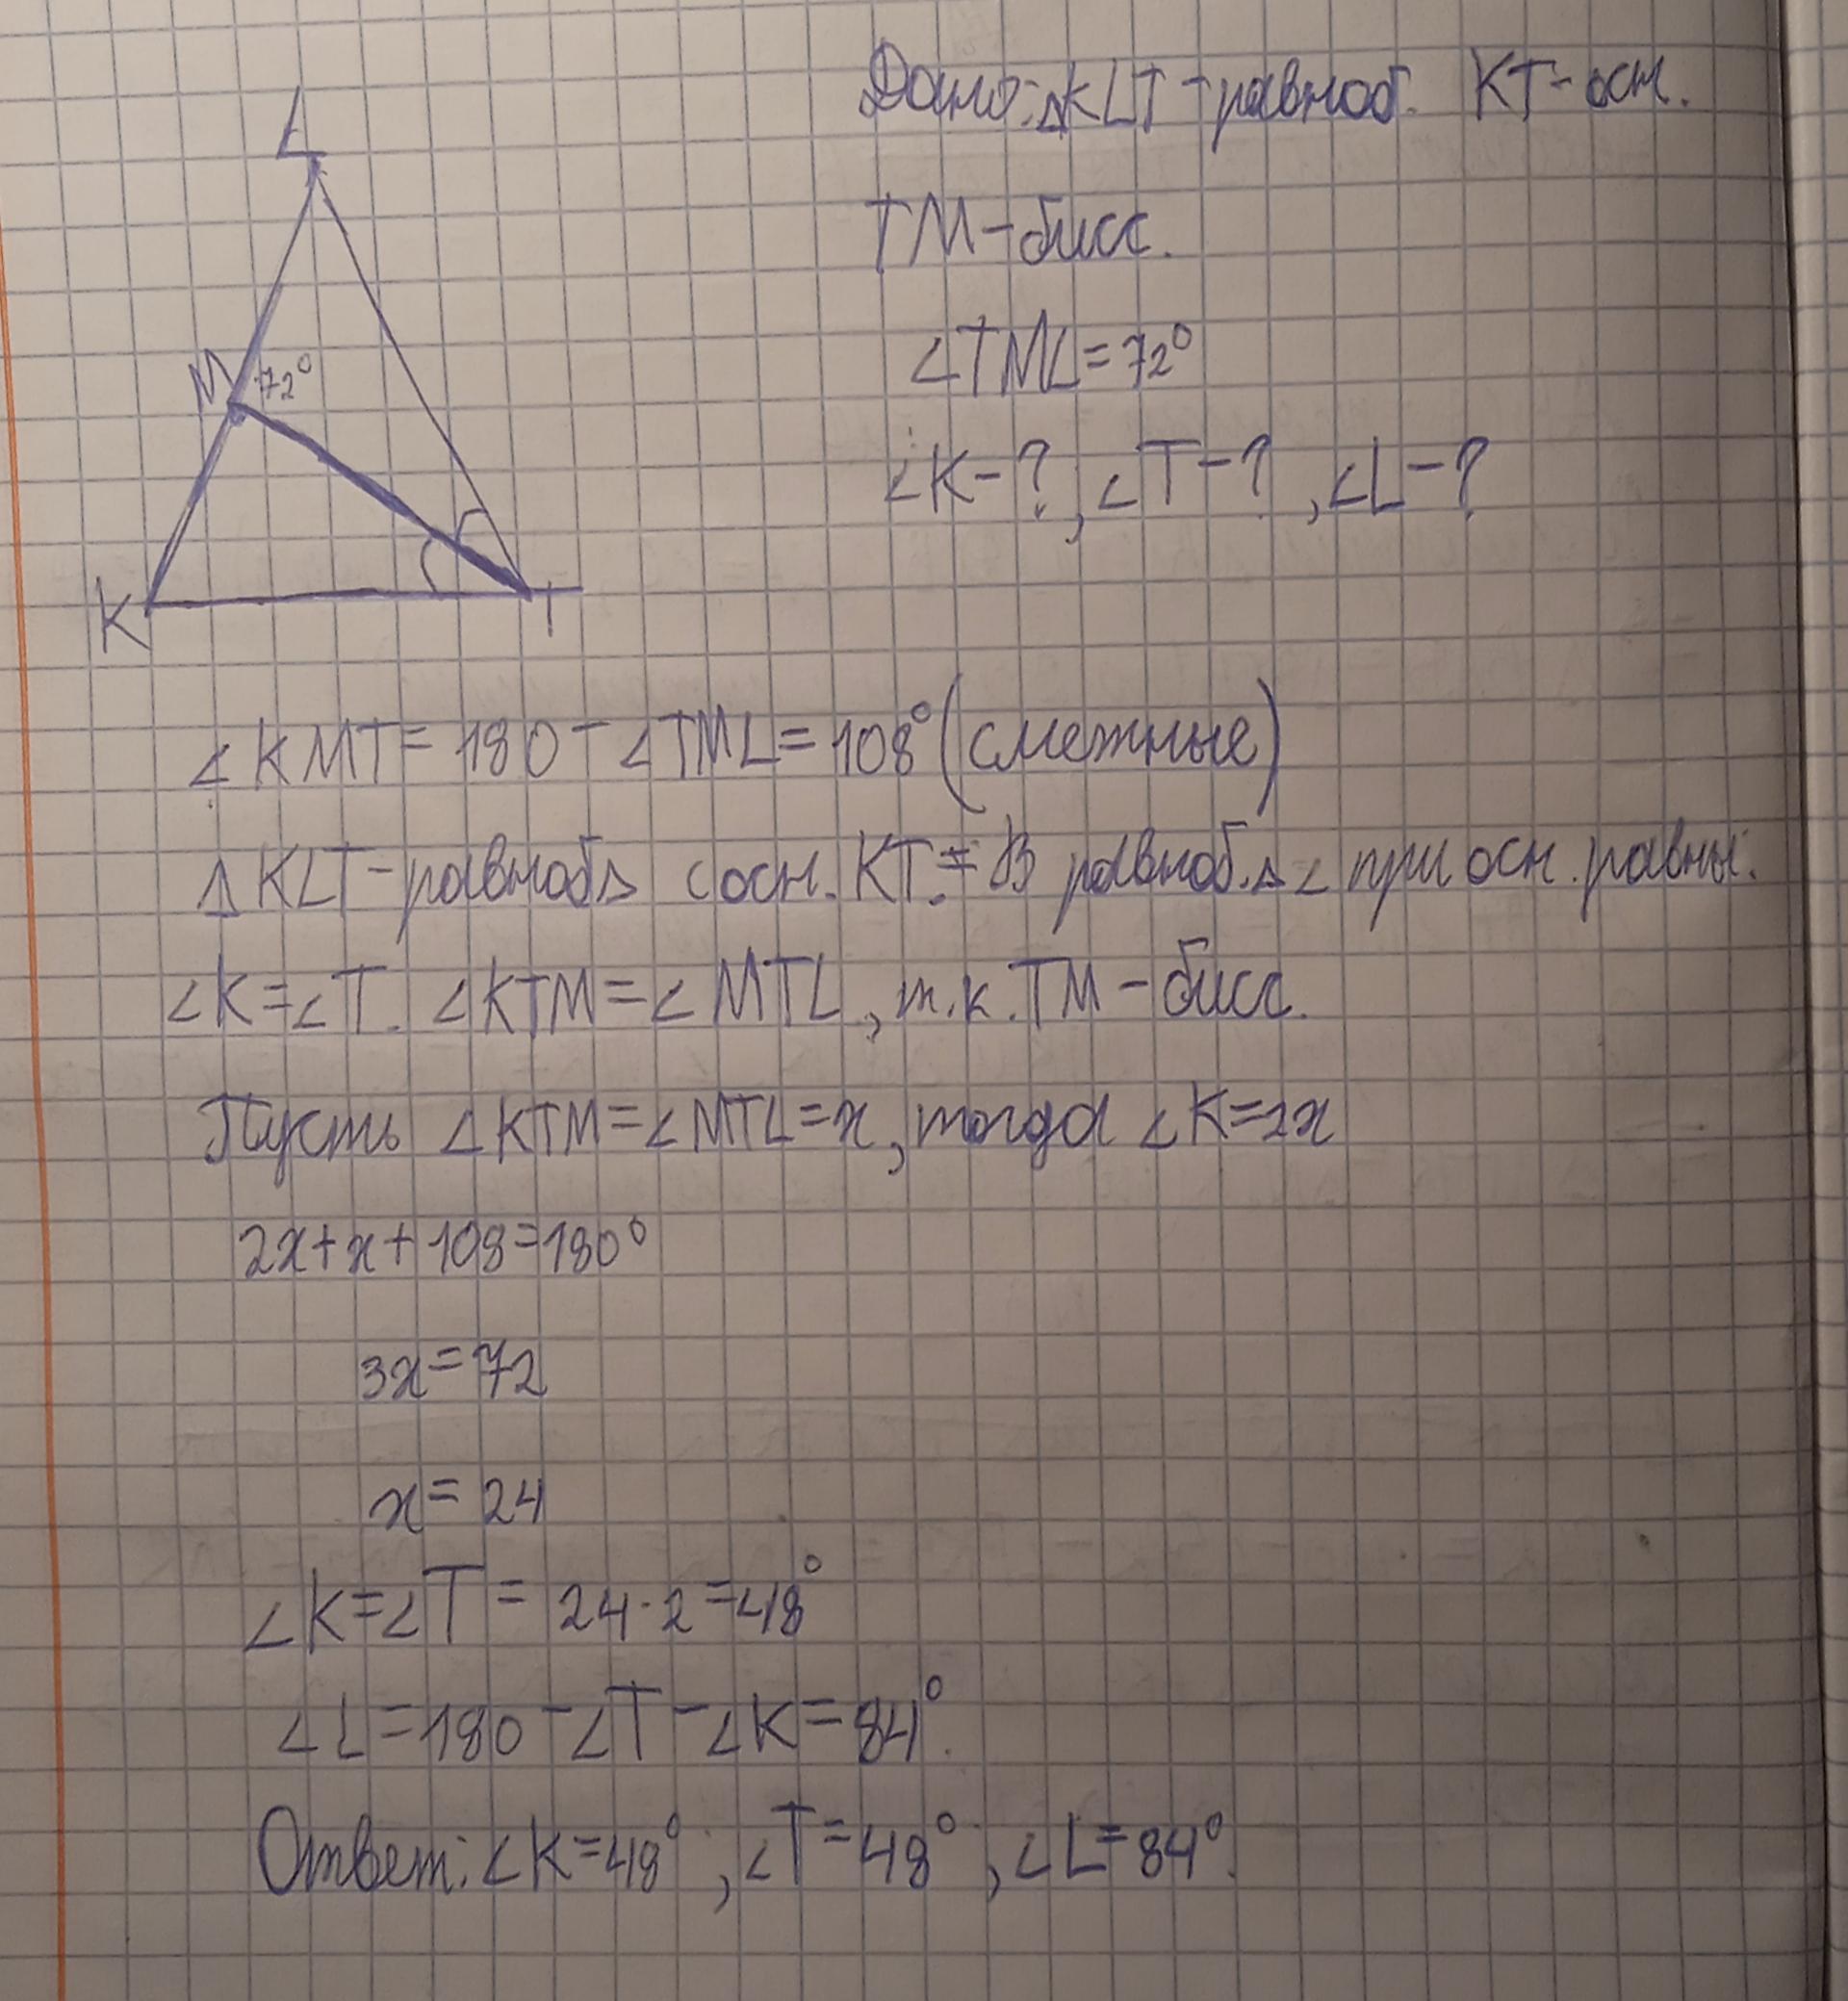 Дано: ΔKLT - равноб. KT - осн.
TM - бисс.
∠TML = 72°
∠K - ?, ∠T - ?, ∠L - ?
L
M 72°
K T
∠KMT = 180 - ∠TML = 108° (смежные)
ΔKLT - равноб Δ с осн. KT. ⇒ В равноб. Δ ∠ при осн. равны.
∠K = ∠T. ∠KTM = ∠MTL, т.к. TM - бисс.
Пусть ∠KTM = ∠MTL = x, тогда ∠K = 2x
2x + x + 108 = 180°
3x = 72
x = 24
∠K = ∠T = 24 · 2 = 48°
∠L = 180 - ∠T - ∠K = 84°.
Ответ: ∠K = 48°, ∠T = 48°, ∠L = 84°.